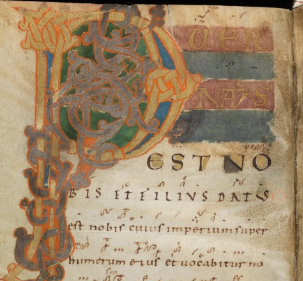 PUER
NATUS
EST NO
BIS ET FILIVS DATUS
est nobis cuius imperium super
humerum eius et vocabitur no